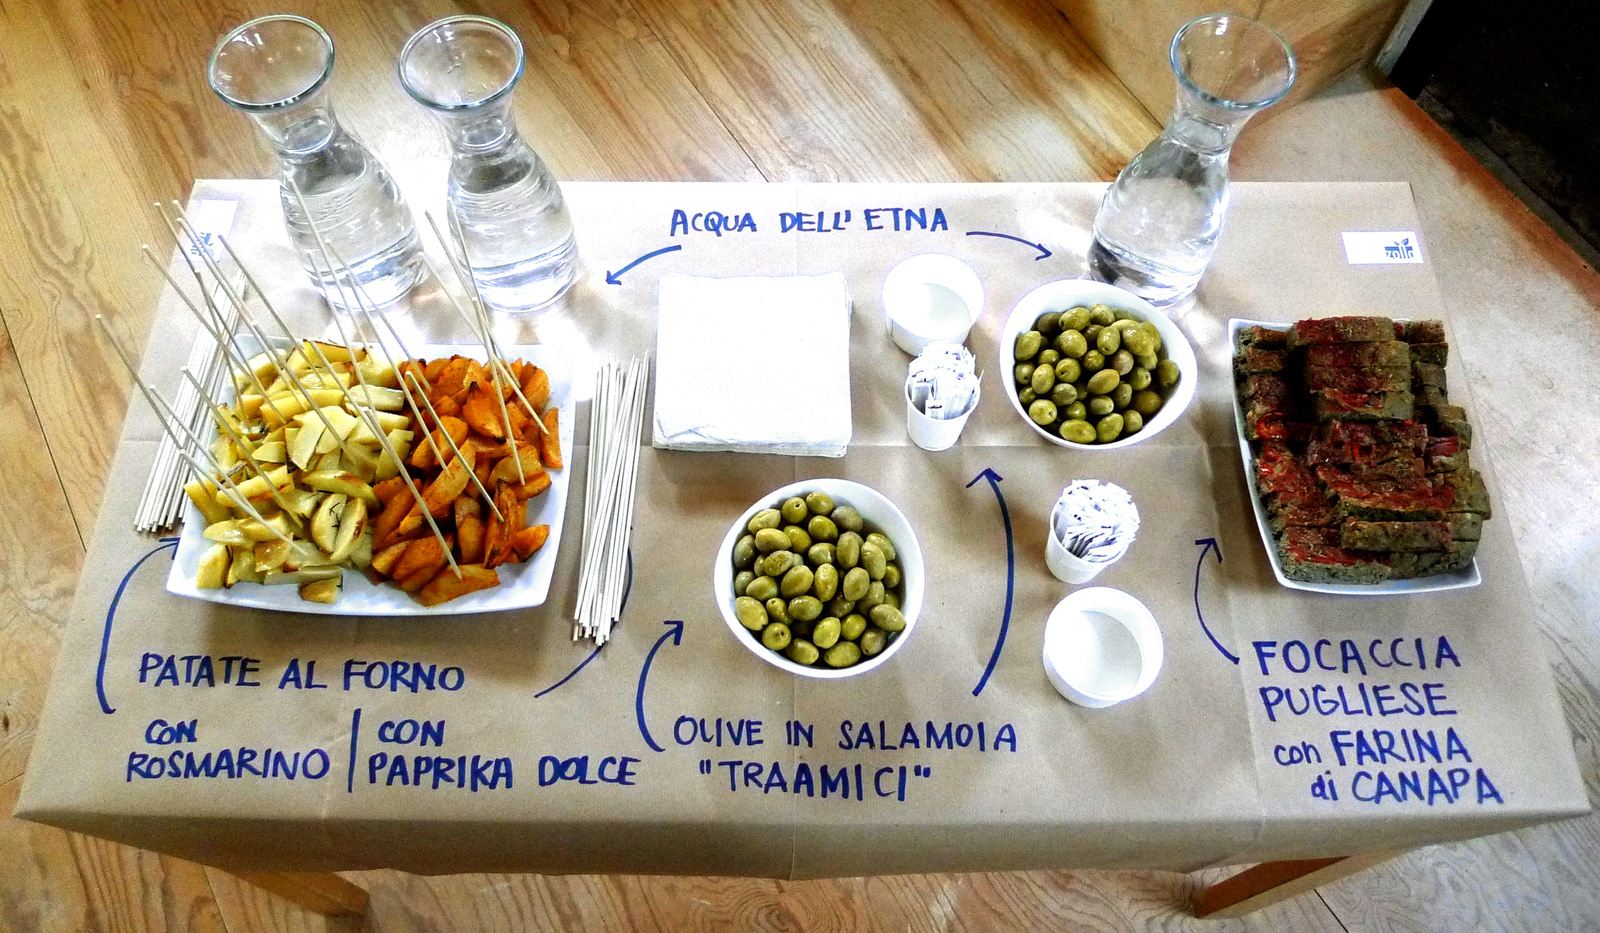 ACQUA DELL' ETNA
zolle
PATATE AL FORNO
CON ROSMARINO
CON PAPRIKA DOLCE
OLIVE IN SALAMOIA
"TRAAMICI"
FOCACCIA
PUGLIESE
con FARINA
di CANAPA